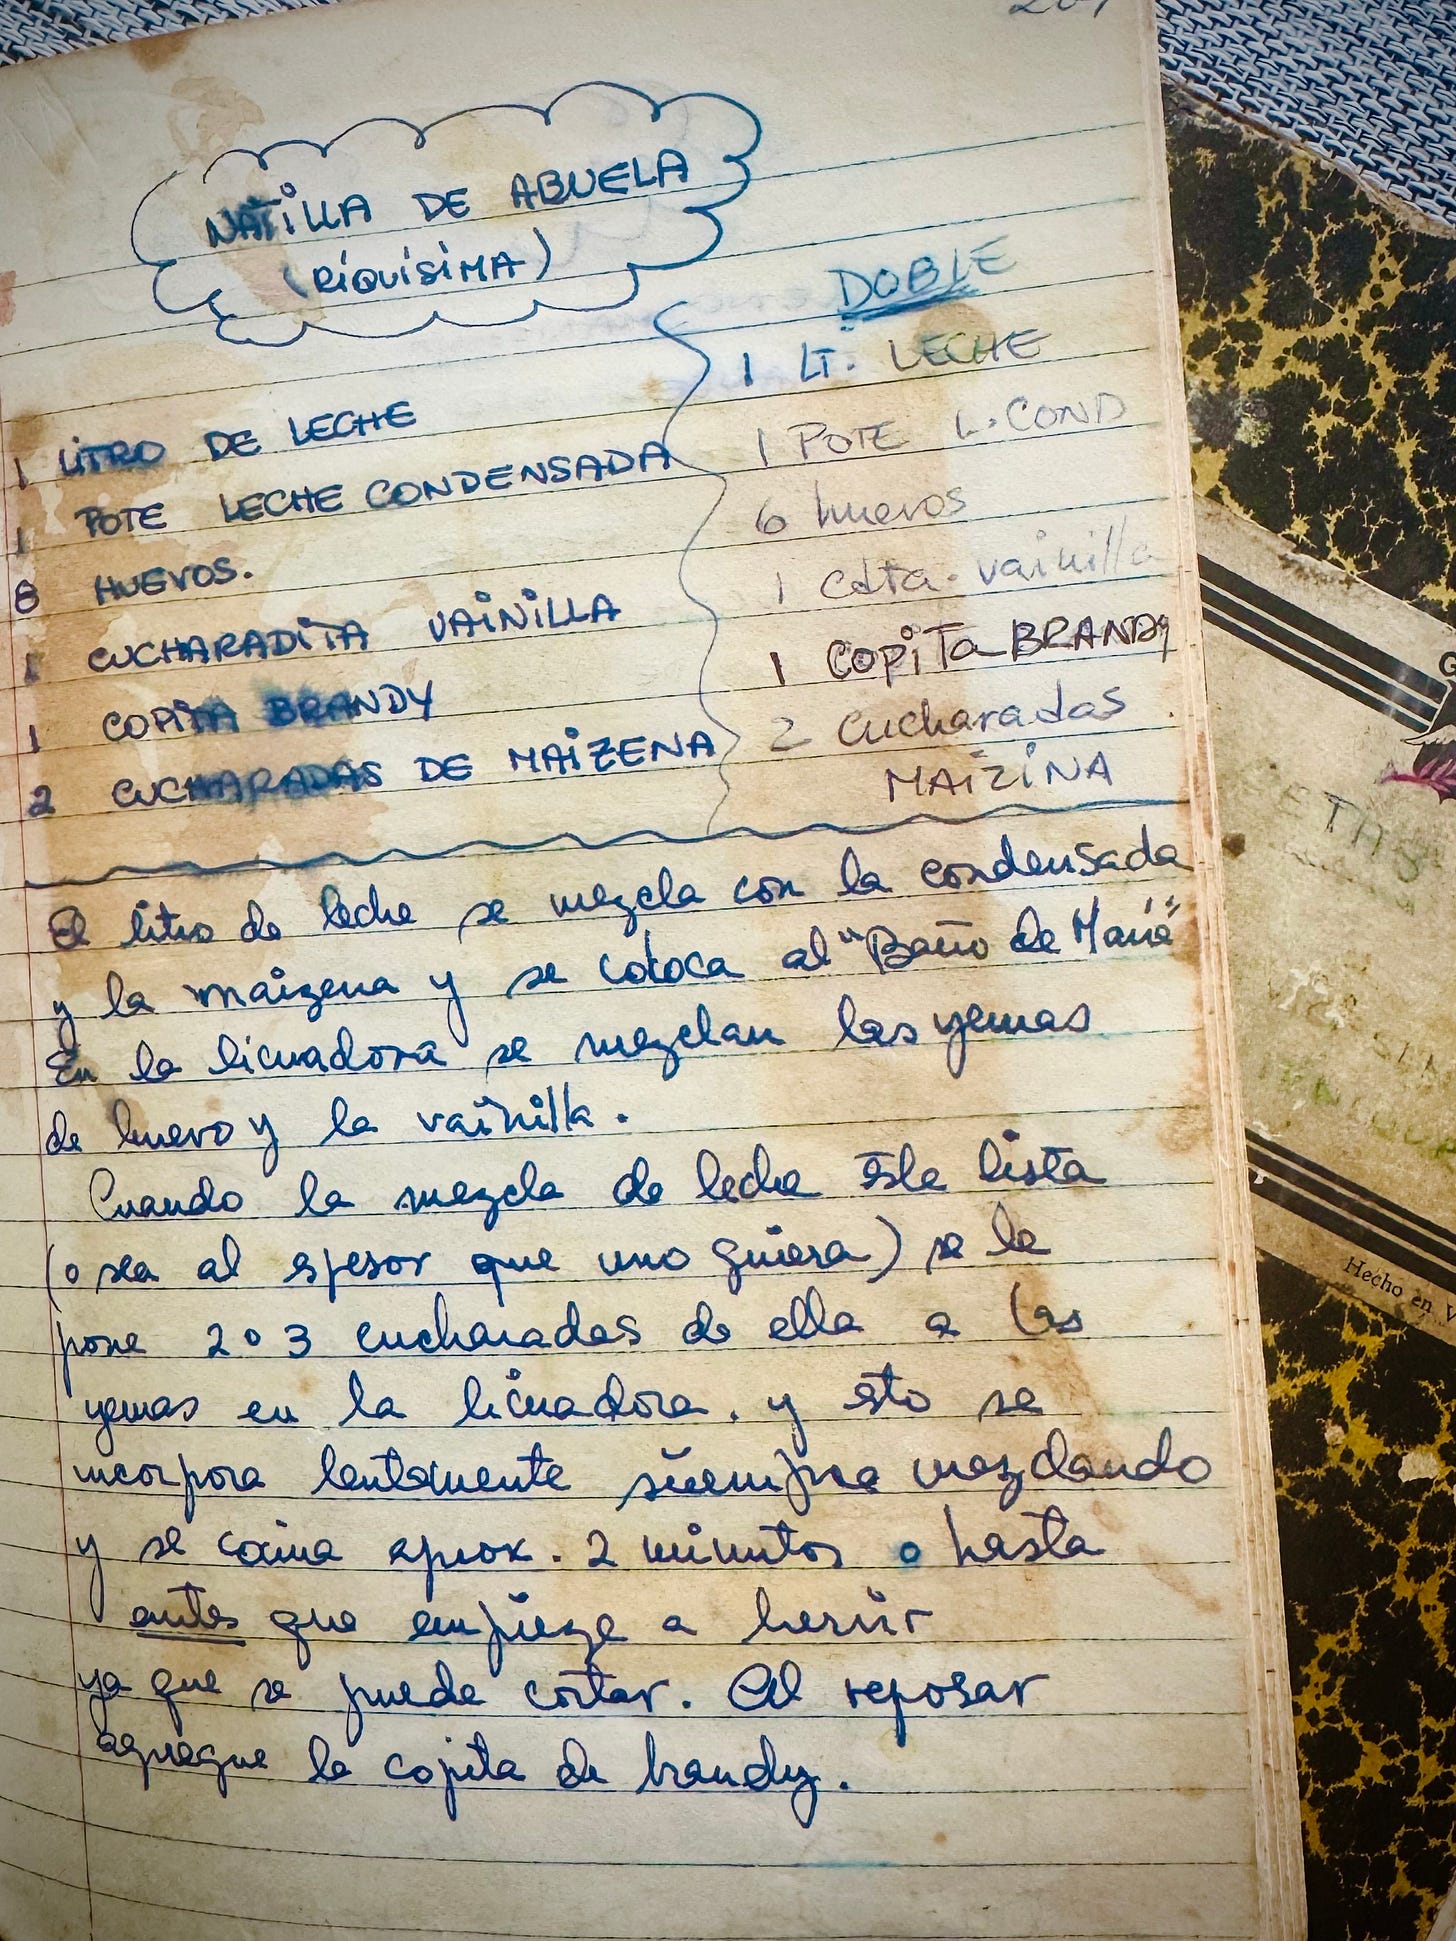 NATILLA DE ABUELA
(RIQUISIMA)
1 LITRO DE LECHE
1 POTE LECHE CONDENSADA
8 HUEVOS.
1 CUCHARADITA VAINILLA
1 COPITA BRANDY
2 CUCHARADAS DE MAIZENA
DOBLE
1 LT. LECHE
1 POTE L. COND
6 huevos
1 Cdta. vainilla
1 COPiTa BRANDy
2 Cucharadas
MAIZINA
El litro de leche se mezcla con la condensada
y la maizena y se coloca al "Baño de María"
En la licuadora se mezclan las yemas
de huevo y la vainilla.
Cuando la mezcla de leche este lista
(o sea al espesor que uno quiera) se le
pone 2 o 3 cucharadas de ella a las
yemas en la licuadora. y esto se
incorpora lentamente siempre mezclando
y se cocina aprox. 2 minutos o hasta
antes que empieze a hervir
ya que se puede cortar. Al reposar
agregue la copita de brandy.
Hecho en V